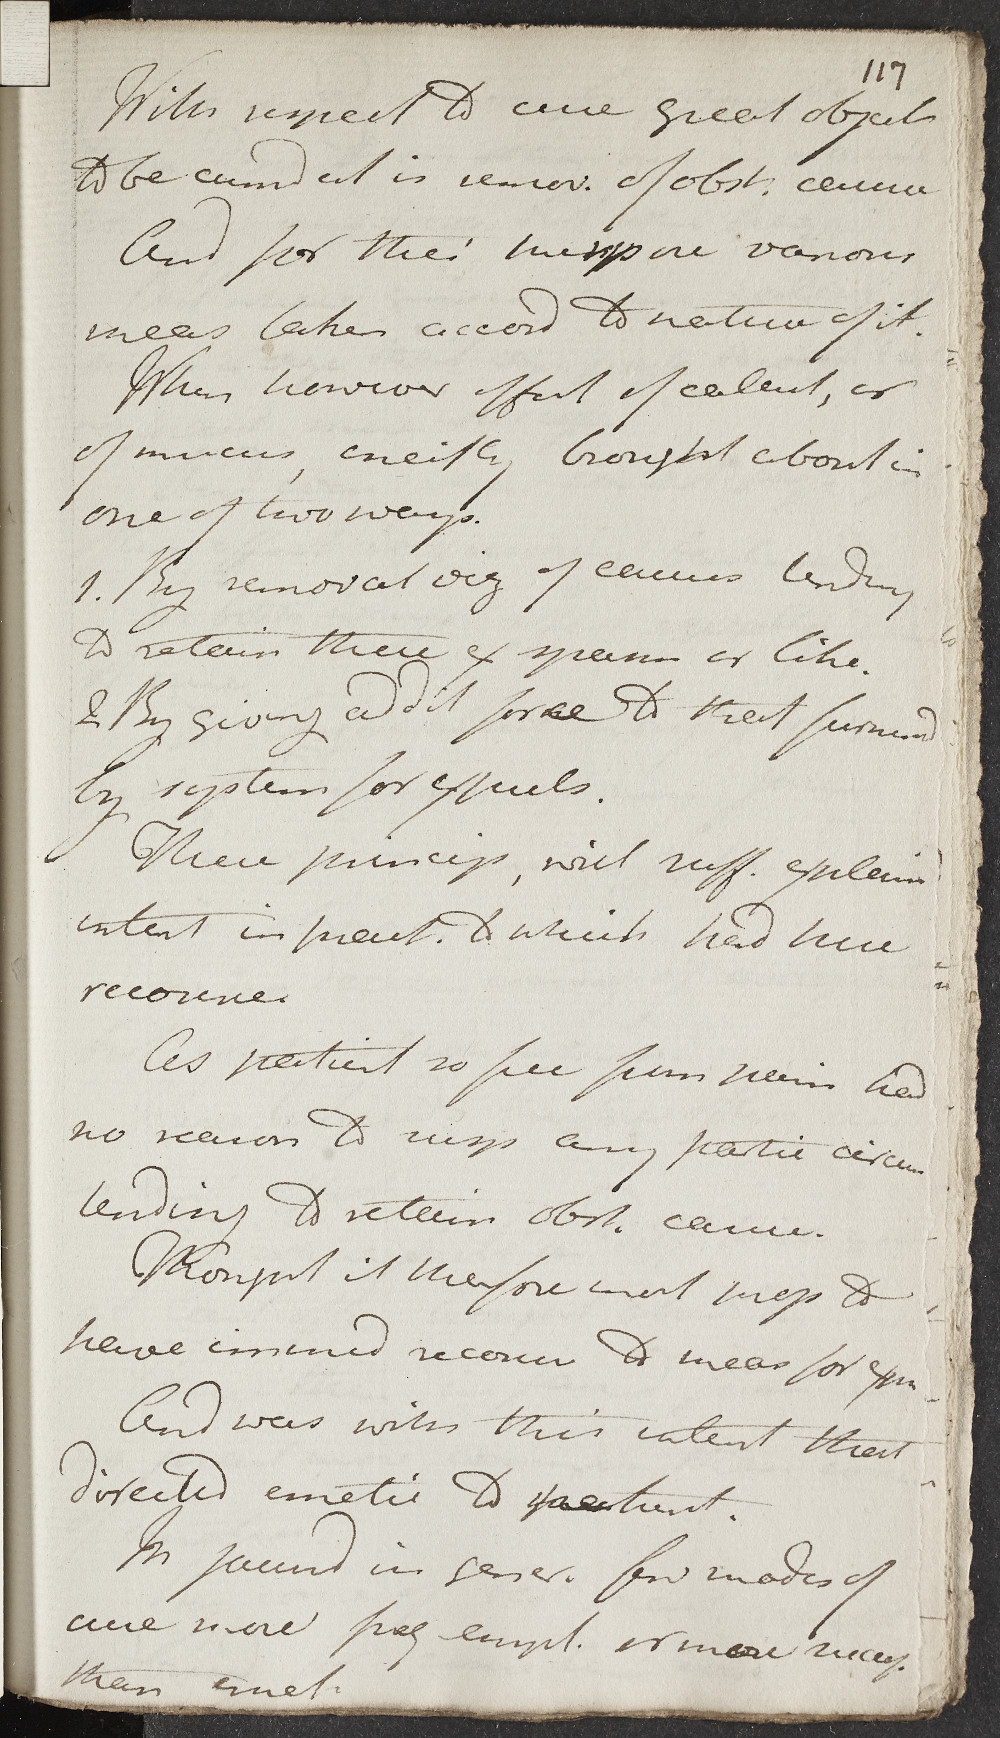 117
With respect to cure great object
to be aimd at is remov. of obst. cause
And for this purpose various
meas taken accord to nature of it.
When however effect of calcul, or
of mucus, chiefly brought about in
one of two ways.
1. By removal viz of causes tending
to retain these ex spasm or like.
2 By giving addit force to that furnind
by system for expuls.
These princip, will suff. explain
intent in pract. to which had here
recourse.
As patient so free from pain had
no reason to susp any partic circum
tending to retain obst. cause.
Thought it therefore most prop to
have immed recour to meas for expu
And was with this intent that
directed emetic to patient.
In jaund in gener. few modes of
cure more freq empl. or more succ.
than emet.